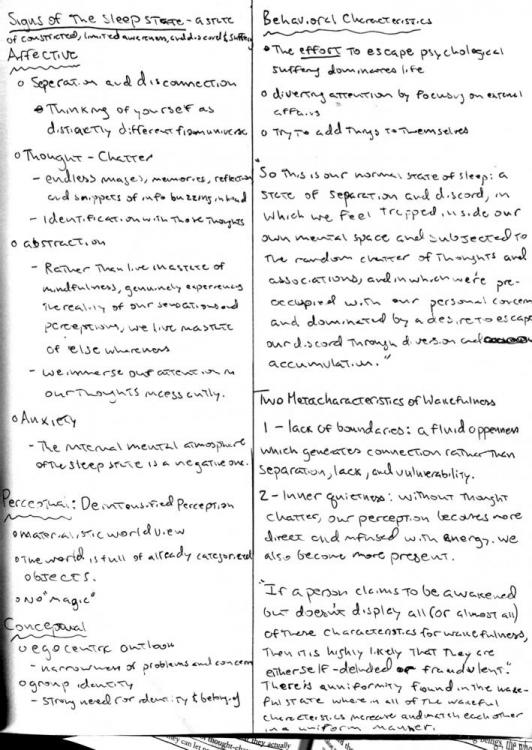 Signs of The Sleep State - a state
of constricted, limited awareness, and discord & suffering
Affective
o Seperation and disconnection
o Thinking of yourself as
distinctly different from universe
o Thought - Chatter
- endless images, memories, reflections
and snippets of info buzzing in head
- Identification with those thoughts
o abstraction
- Rather than live in a state of
mindfulness, genuinely experiencing
the reality of our sensations and
perceptions, we live in a state
of else whereness
- we immerse our attention in
our thoughts incessantly.
o Anxiety
- The internal mental atmosphere
of the sleep state is a negative one.
Perceptual: Deintensified Perception
o materialistic world view
o the world is full of already categorized
objects.
o No "magic"
Conceptual
o egocentric outlook
- narrowness of problems and concerns
o group identity
- strong need for identity & belonging
Behavioral Characteristics
o The effort to escape psychological
suffering dominates life
o diverting attention by focusing on external
affairs
o Try to add things to themselves
"So this is our normal state of sleep: a
state of separation and discord, in
which we feel trapped inside our
own mental space and subjected to
the random chatter of thoughts and
associations, and in which we're pre-
occupied with our personal concerns
and dominated by a desire to escape
our discord through diversion and
accumulation."
Two Metacharacteristics of Wakefulness
1 - lack of boundaries: a fluid oppenness
which generates connection rather than
separation, lack, and vulnerability.
2 - Inner quietness: without thought
chatter, our perception becomes more
direct and infused with energy. we
also become more present.
"If a person claims to be awakened
but doesn't display all (or almost all)
of these characteristics for wakefulness,
Then it is highly likely that they are
either self-deluded or fraudulent."
There is a uniformity found in the wake-
ful state wherein all of the wakeful
characteristics increase and match each other
in a uniform manner.
they actually